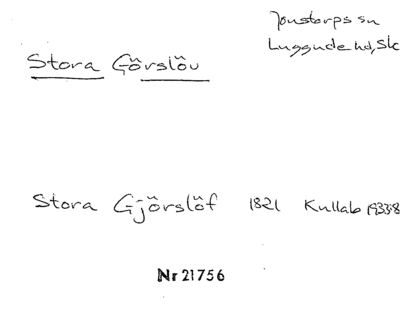 Jonstorps sn
Luggude hd, Sk
Stora Görslöv
Stora Gjörslöf 1821 Kullab 1933:8
Nr 21756